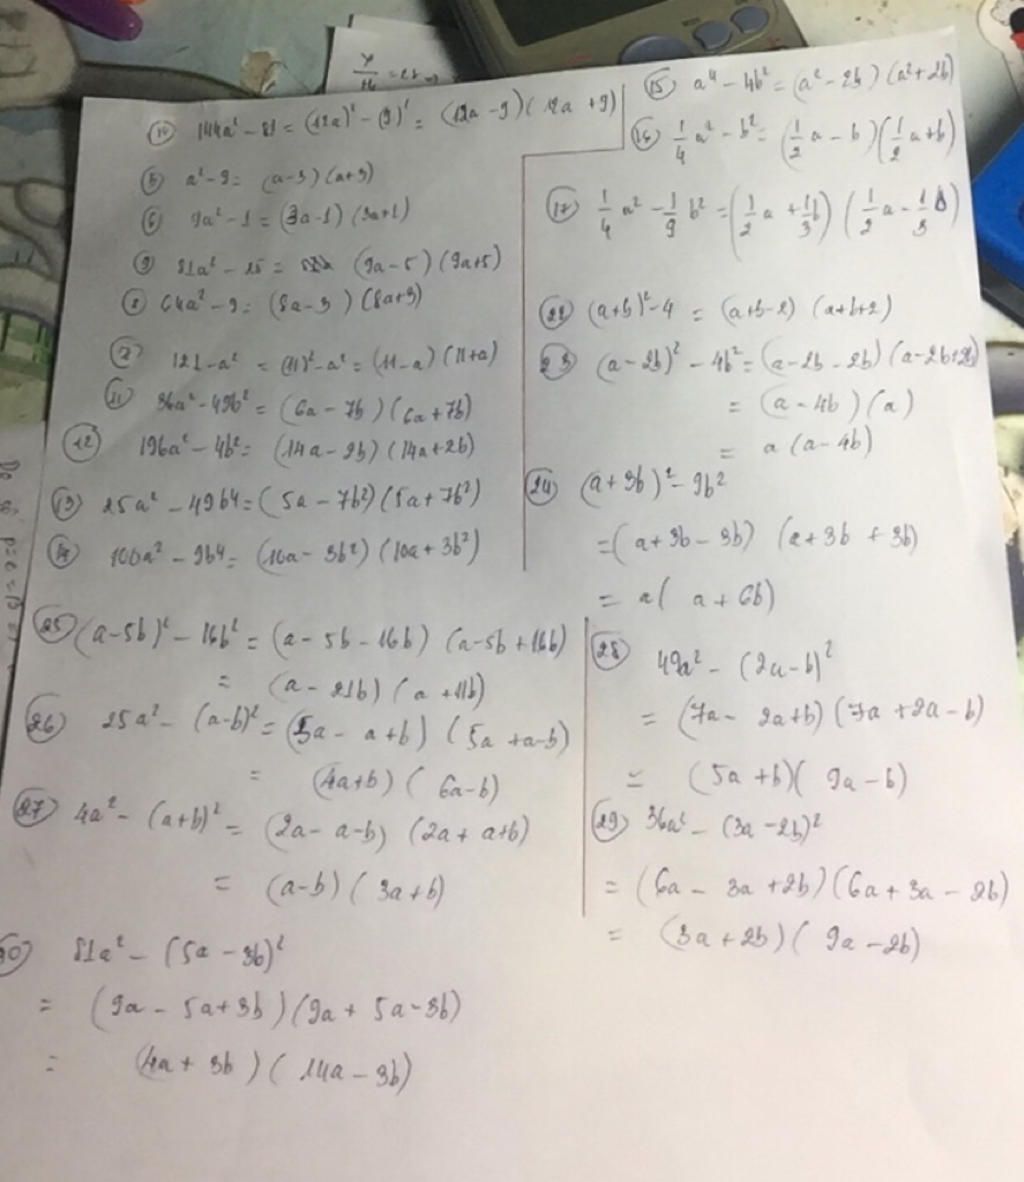 (10) 144a² - 81 = (12a)² - (9)² = (12a - 9)(12a + 9)
(5) a² - 9 = (a-3)(a+3)
(6) 9a² - 1 = (3a-1)(3a+1)
(9) 81a² - 25 = (9a-5)(9a+5)
(8) 64a² - 9 = (8a-3)(8a+3)
(7) 121 - a² = (11)² - a² = (11-a)(11+a)
(11) 36a² - 49b² = (6a - 7b)(6a + 7b)
(12) 196a² - 4b² = (14a - 2b)(14a + 2b)
(13) 25a² - 49b4 = (5a - 7b²)(5a + 7b²)
(14) 100a² - 9b4 = (10a - 3b²)(10a + 3b²)
(15) a⁴ - 4b² = (a² - 2b)(a² + 2b)
(16) 1/4 a² - b² = (1/2 a - b)(1/2 a + b)
(17) 1/4 a² - 1/9 b² = (1/2 a + 1/3 b)(1/2 a - 1/3 b)
(22) (a+b)² - 4 = (a+b-2)(a+b+2)
(23) (a-2b)² - 4b² = (a-2b-2b)(a-2b+2b)
= (a-4b)(a)
= a(a-4b)
(24) (a+3b)² - 9b²
= (a+3b-3b)(a+3b+3b)
= a(a+6b)
(25) (a-5b)² - 16b² = (a-5b-16b)(a-5b+16b)
= (a-21b)(a+11b)
(26) 25a² - (a-b)² = (5a - a+b)(5a + a-b)
= (4a+b)(6a-b)
(27) 4a² - (a+b)² = (2a - a-b)(2a + a+b)
= (a-b)(3a+b)
(28) 49a² - (2a-b)²
= (7a - 2a+b)(7a + 2a - b)
= (5a+b)(9a-b)
(29) 36a² - (3a-2b)²
= (6a - 3a + 2b)(6a + 3a - 2b)
= (3a+2b)(9a-2b)
30) 81a² - (5a-3b)²
= (9a - 5a + 3b)(9a + 5a - 3b)
= (4a + 3b)(14a - 3b)